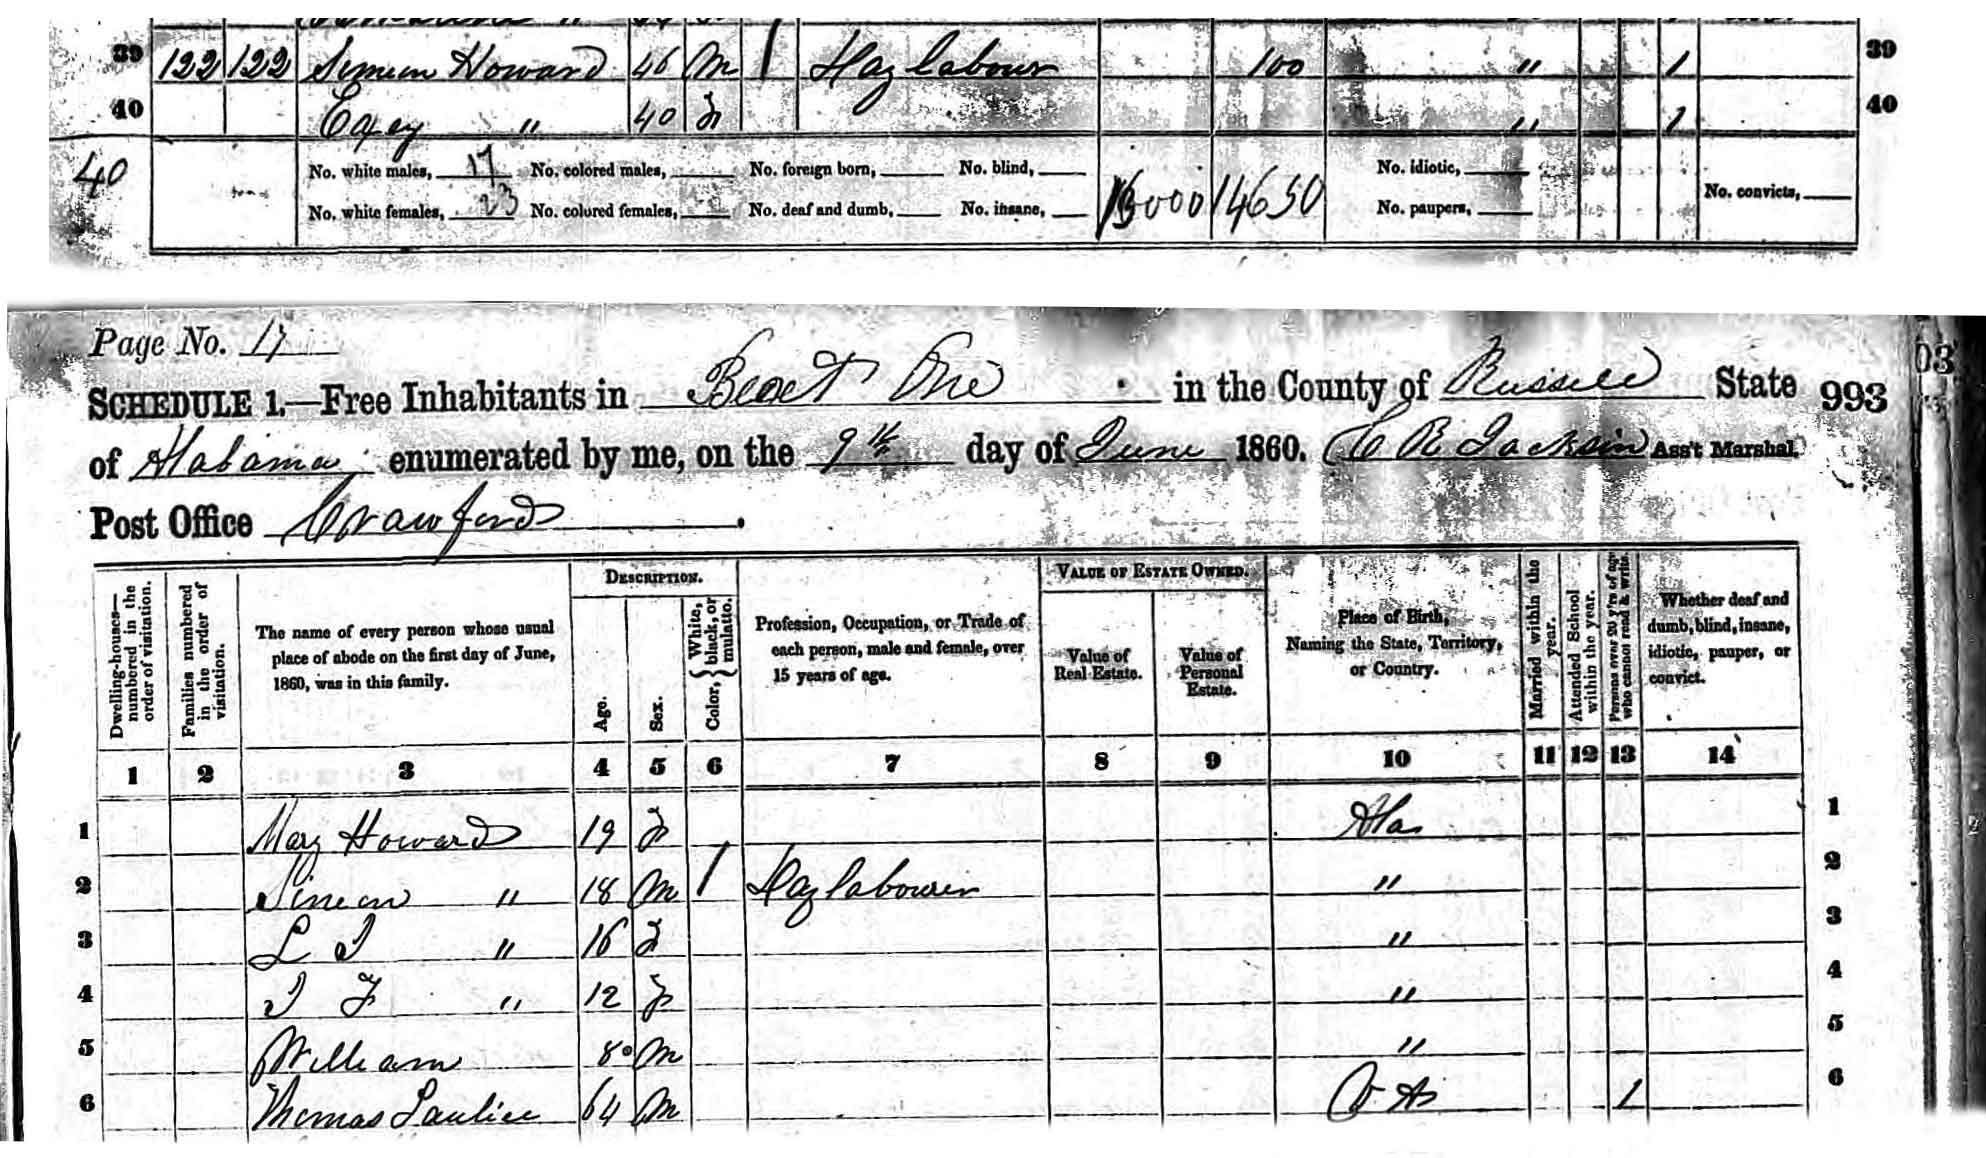 39 122 122 Simeon Howard 46 M 1 Day labour 100 " 1 39
40 Exey " 40 F " 1 40
40 No. white males, 17 No. colored males, No. foreign born, No. blind, 15000 14650 No. idiotic, No. convicts,
No. white females, 23 No. colored females, No. deaf and dumb, No. insane, No. paupers,
Page No. 17
SCHEDULE 1.—Free Inhabitants in Beat One in the County of Russell State 993
of Alabama enumerated by me, on the 9th day of June 1860. C R Jackson Ass't Marshal.
Post Office Crawford.
Dwelling-houses—numbered in the order of visitation.
Families numbered in the order of visitation.
The name of every person whose usual place of abode on the first day of June, 1860, was in this family.
DESCRIPTION.
Age.
Sex.
Color, { White, black, or mulatto.
Profession, Occupation, or Trade of each person, male and female, over 15 years of age.
VALUE OF ESTATE OWNED.
Value of Real Estate.
Value of Personal Estate.
Place of Birth, Naming the State, Territory, or Country.
Married within the year.
Attended School within the year.
Persons over 20 y'rs of age who cannot read & write.
Whether deaf and dumb, blind, insane, idiotic, pauper, or convict.
1 2 3 4 5 6 7 8 9 10 11 12 13 14
1 Mary Howard 19 F Ala 1
2 Simeon " 18 M 1 Day labourer " 2
3 L J " 16 F " 3
4 J F " 12 F " 4
5 William 8 M " 5
6 Thomas 64 M 1 6